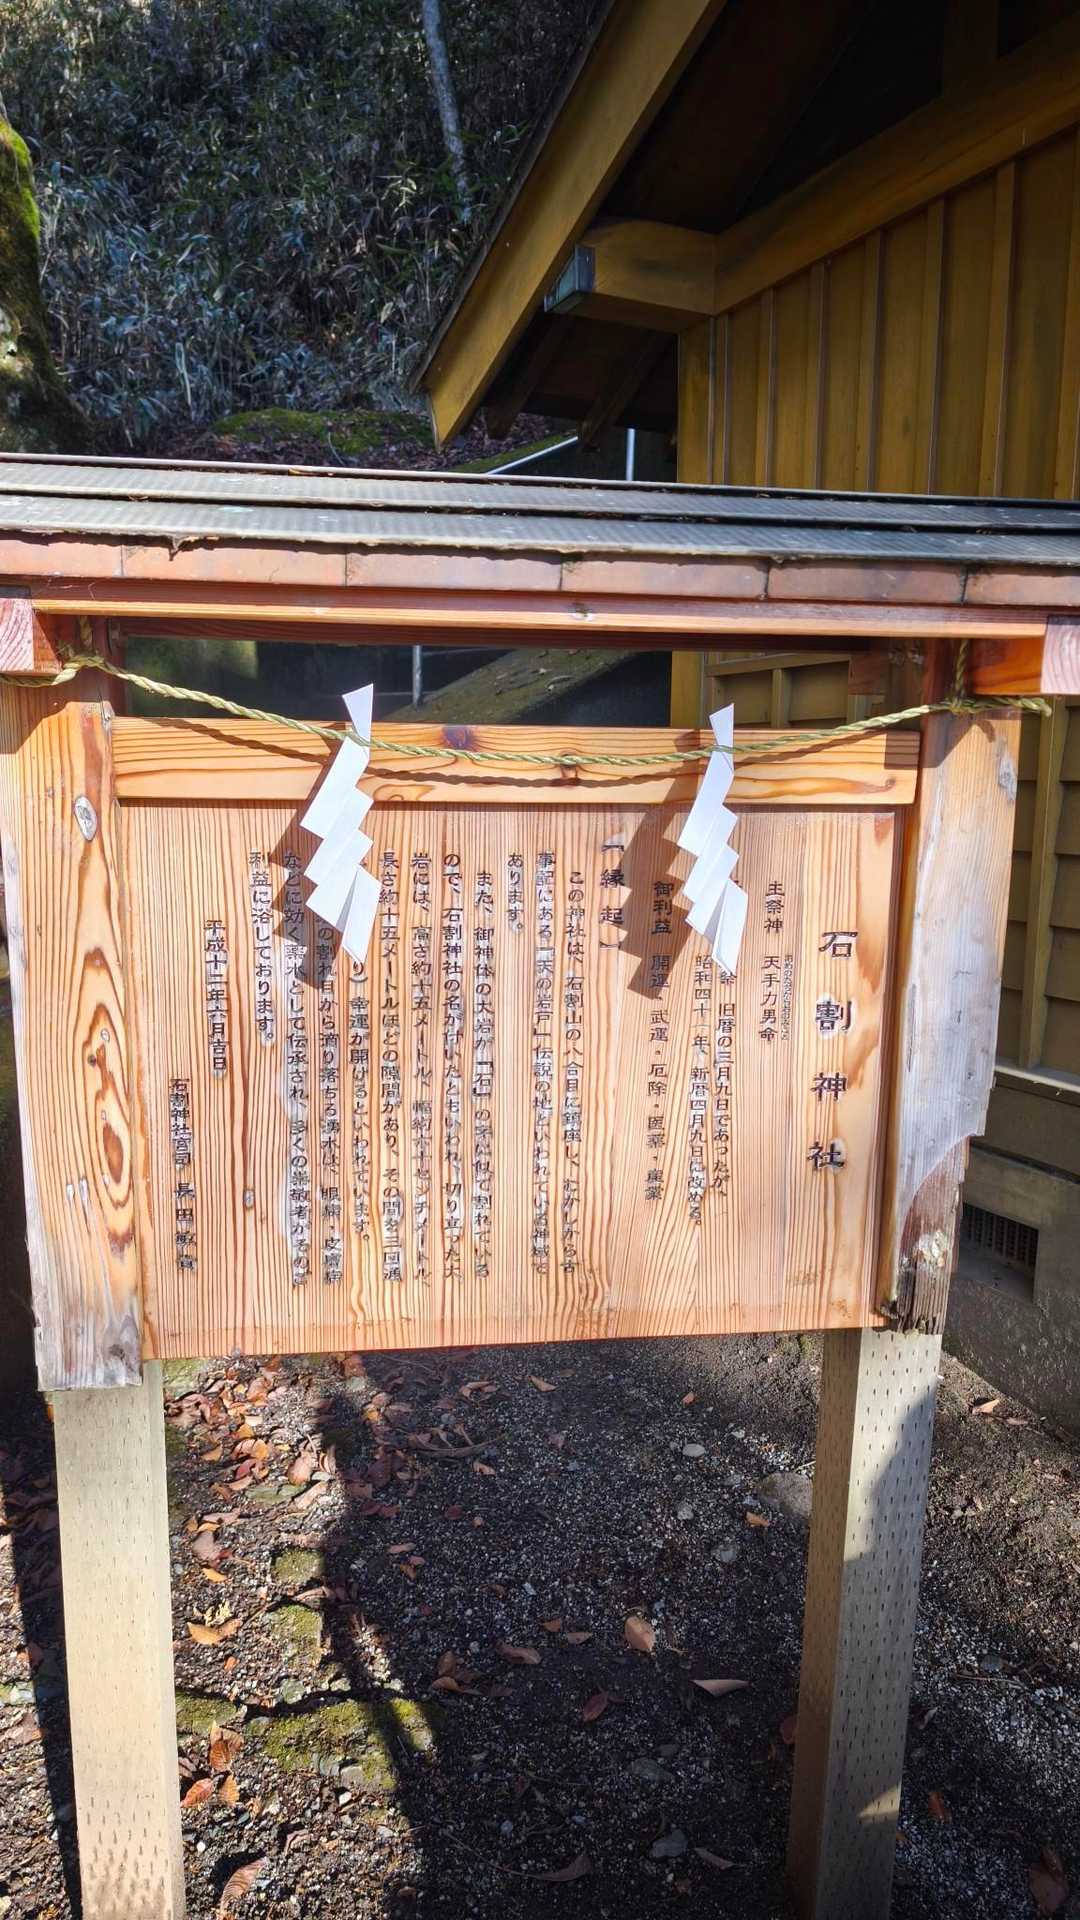 石割神社
主祭神 天手力男命
祭 旧暦の三月九日であったが、
昭和四十一年、新暦四月九日に改める。
御利益 開運・武運・厄除・医薬・産業
「縁起」
この神社は、石割山の八合目に鎮座し、むかしから古
事記にある「天の岩戸」伝説の地といわれている神域で
あります。
また、御神体の大岩が「石」の字に似て割れている
ので、石割神社の名が付いたともいわれ、切り立った大
岩には、高さ約十五メートル、幅約六十センチメートル、
長さ約十五メートルほどの隙間があり、その間を三回通
り）幸運が開けるといわれています。
の割れ目から滴り落ちる湧水は、眼病・皮膚病
などに効く薬水として伝承され、多くの崇敬者がそのご
利益に浴しております。
平成十二年六月吉日
石割神社宮司 長田